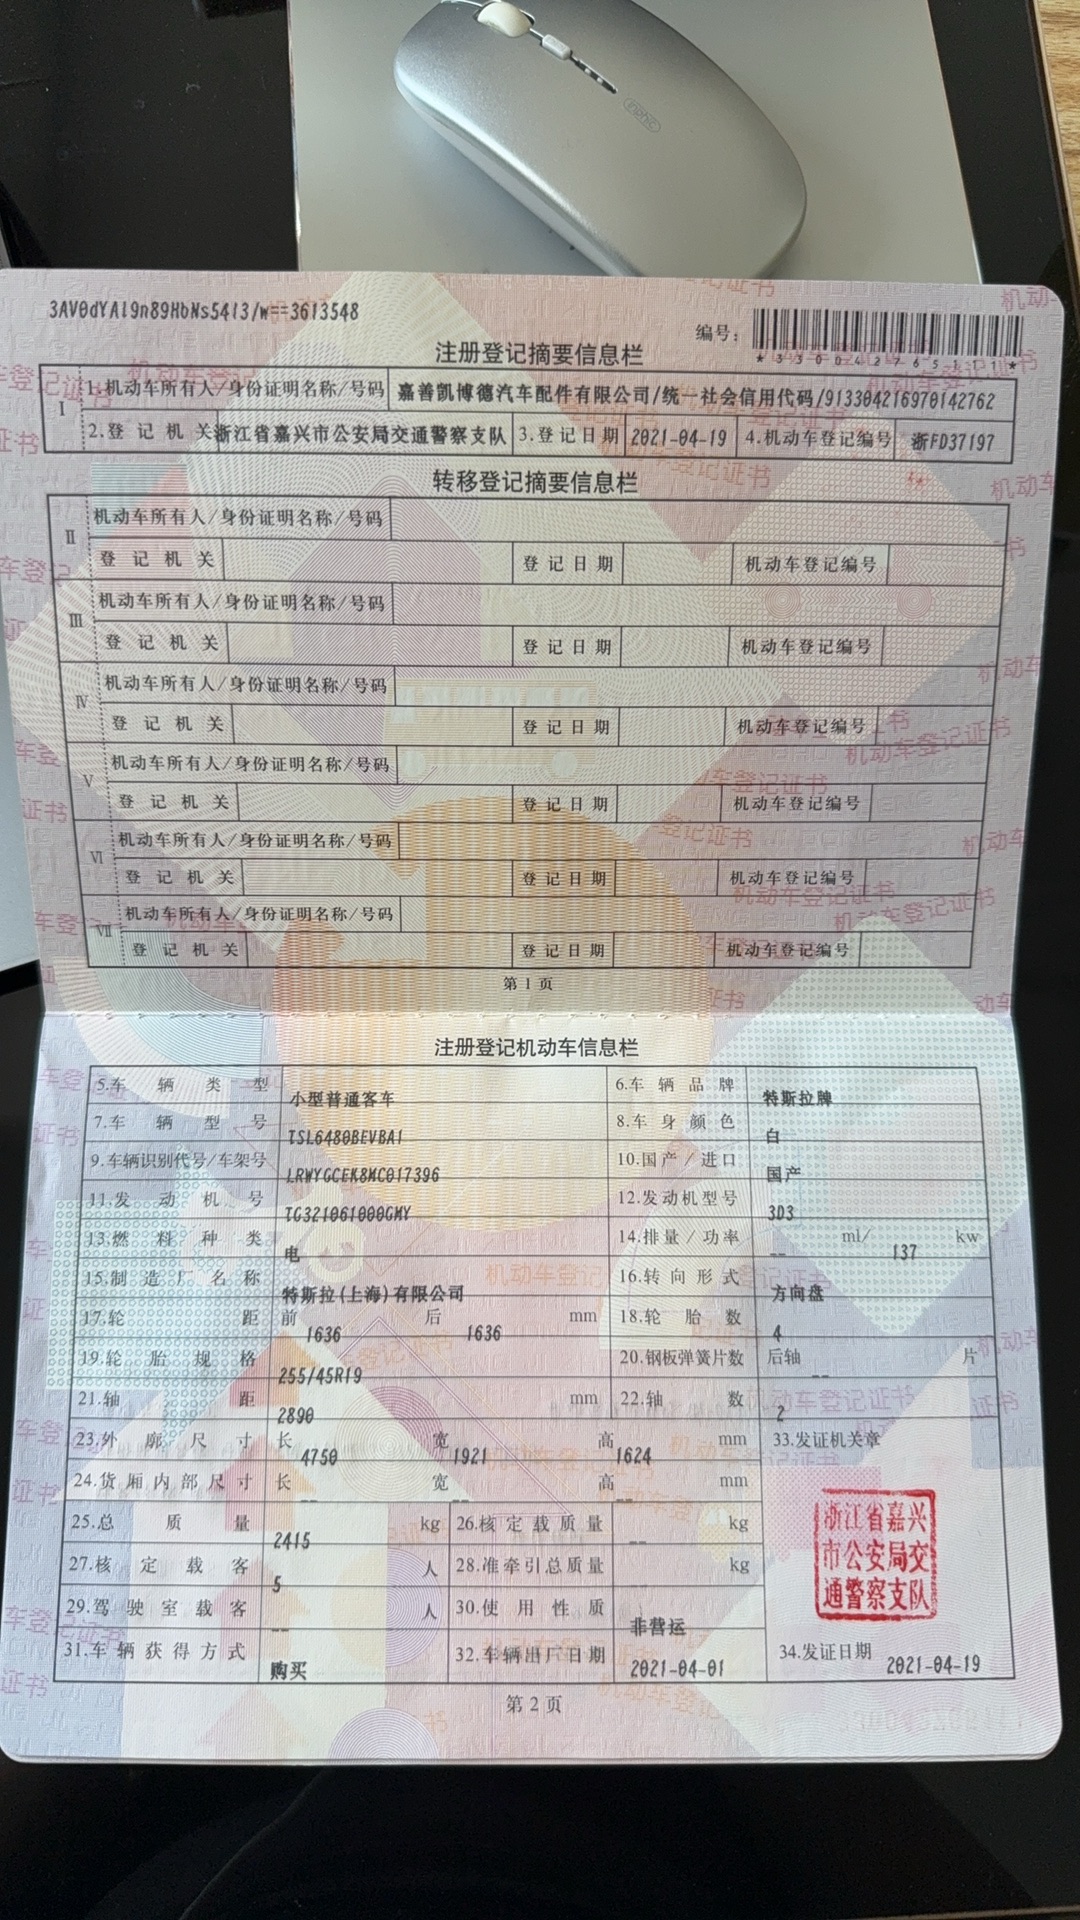 inphic
3AV0dYAl9n89HbNs5413/w==3613548
编号：
*330042765111*
注册登记摘要信息栏
I 1.机动车所有人/身份证明名称/号码 嘉善凯博德汽车配件有限公司/统一社会信用代码/913304216970142762
2.登记机关 浙江省嘉兴市公安局交通警察支队 3.登记日期 2021-04-19 4.机动车登记编号 浙FD37197
转移登记摘要信息栏
II 机动车所有人/身份证明名称/号码
登记机关 登记日期 机动车登记编号
III 机动车所有人/身份证明名称/号码
登记机关 登记日期 机动车登记编号
IV 机动车所有人/身份证明名称/号码
登记机关 登记日期 机动车登记编号
V 机动车所有人/身份证明名称/号码
登记机关 登记日期 机动车登记编号
VI 机动车所有人/身份证明名称/号码
登记机关 登记日期 机动车登记编号
VII 机动车所有人/身份证明名称/号码
登记机关 登记日期 机动车登记编号
第1页
注册登记机动车信息栏
5.车辆类型 小型普通客车 6.车辆品牌 特斯拉牌
7.车辆型号 TSL6480BEVBA1 8.车身颜色 白
9.车辆识别代号/车架号 LRWYGCEK8MC017396 10.国产/进口 国产
11.发动机号 TG321061000GMY 12.发动机型号 3D3
13.燃料种类 电 14.排量/功率 -- ml/ 137 kw
15.制造厂名称 特斯拉(上海)有限公司 16.转向形式 方向盘
17.轮距 前 1636 后 1636 mm 18.轮胎数 4
19.轮胎规格 255/45R19 20.钢板弹簧片数 后轴 -- 片
21.轴距 2890 mm 22.轴数 2
23.外廓尺寸 长 4750 宽 1921 高 1624 mm 33.发证机关章
24.货厢内部尺寸 长 -- 宽 -- 高 -- mm
25.总质量 2415 kg 26.核定载质量 -- kg
27.核定载客 5 人 28.准牵引总质量 -- kg
29.驾驶室载客 -- 人 30.使用性质 非营运
31.车辆获得方式 购买 32.车辆出厂日期 2021-04-01 34.发证日期 2021-04-19
浙江省嘉兴
市公安局交
通警察支队
第2页